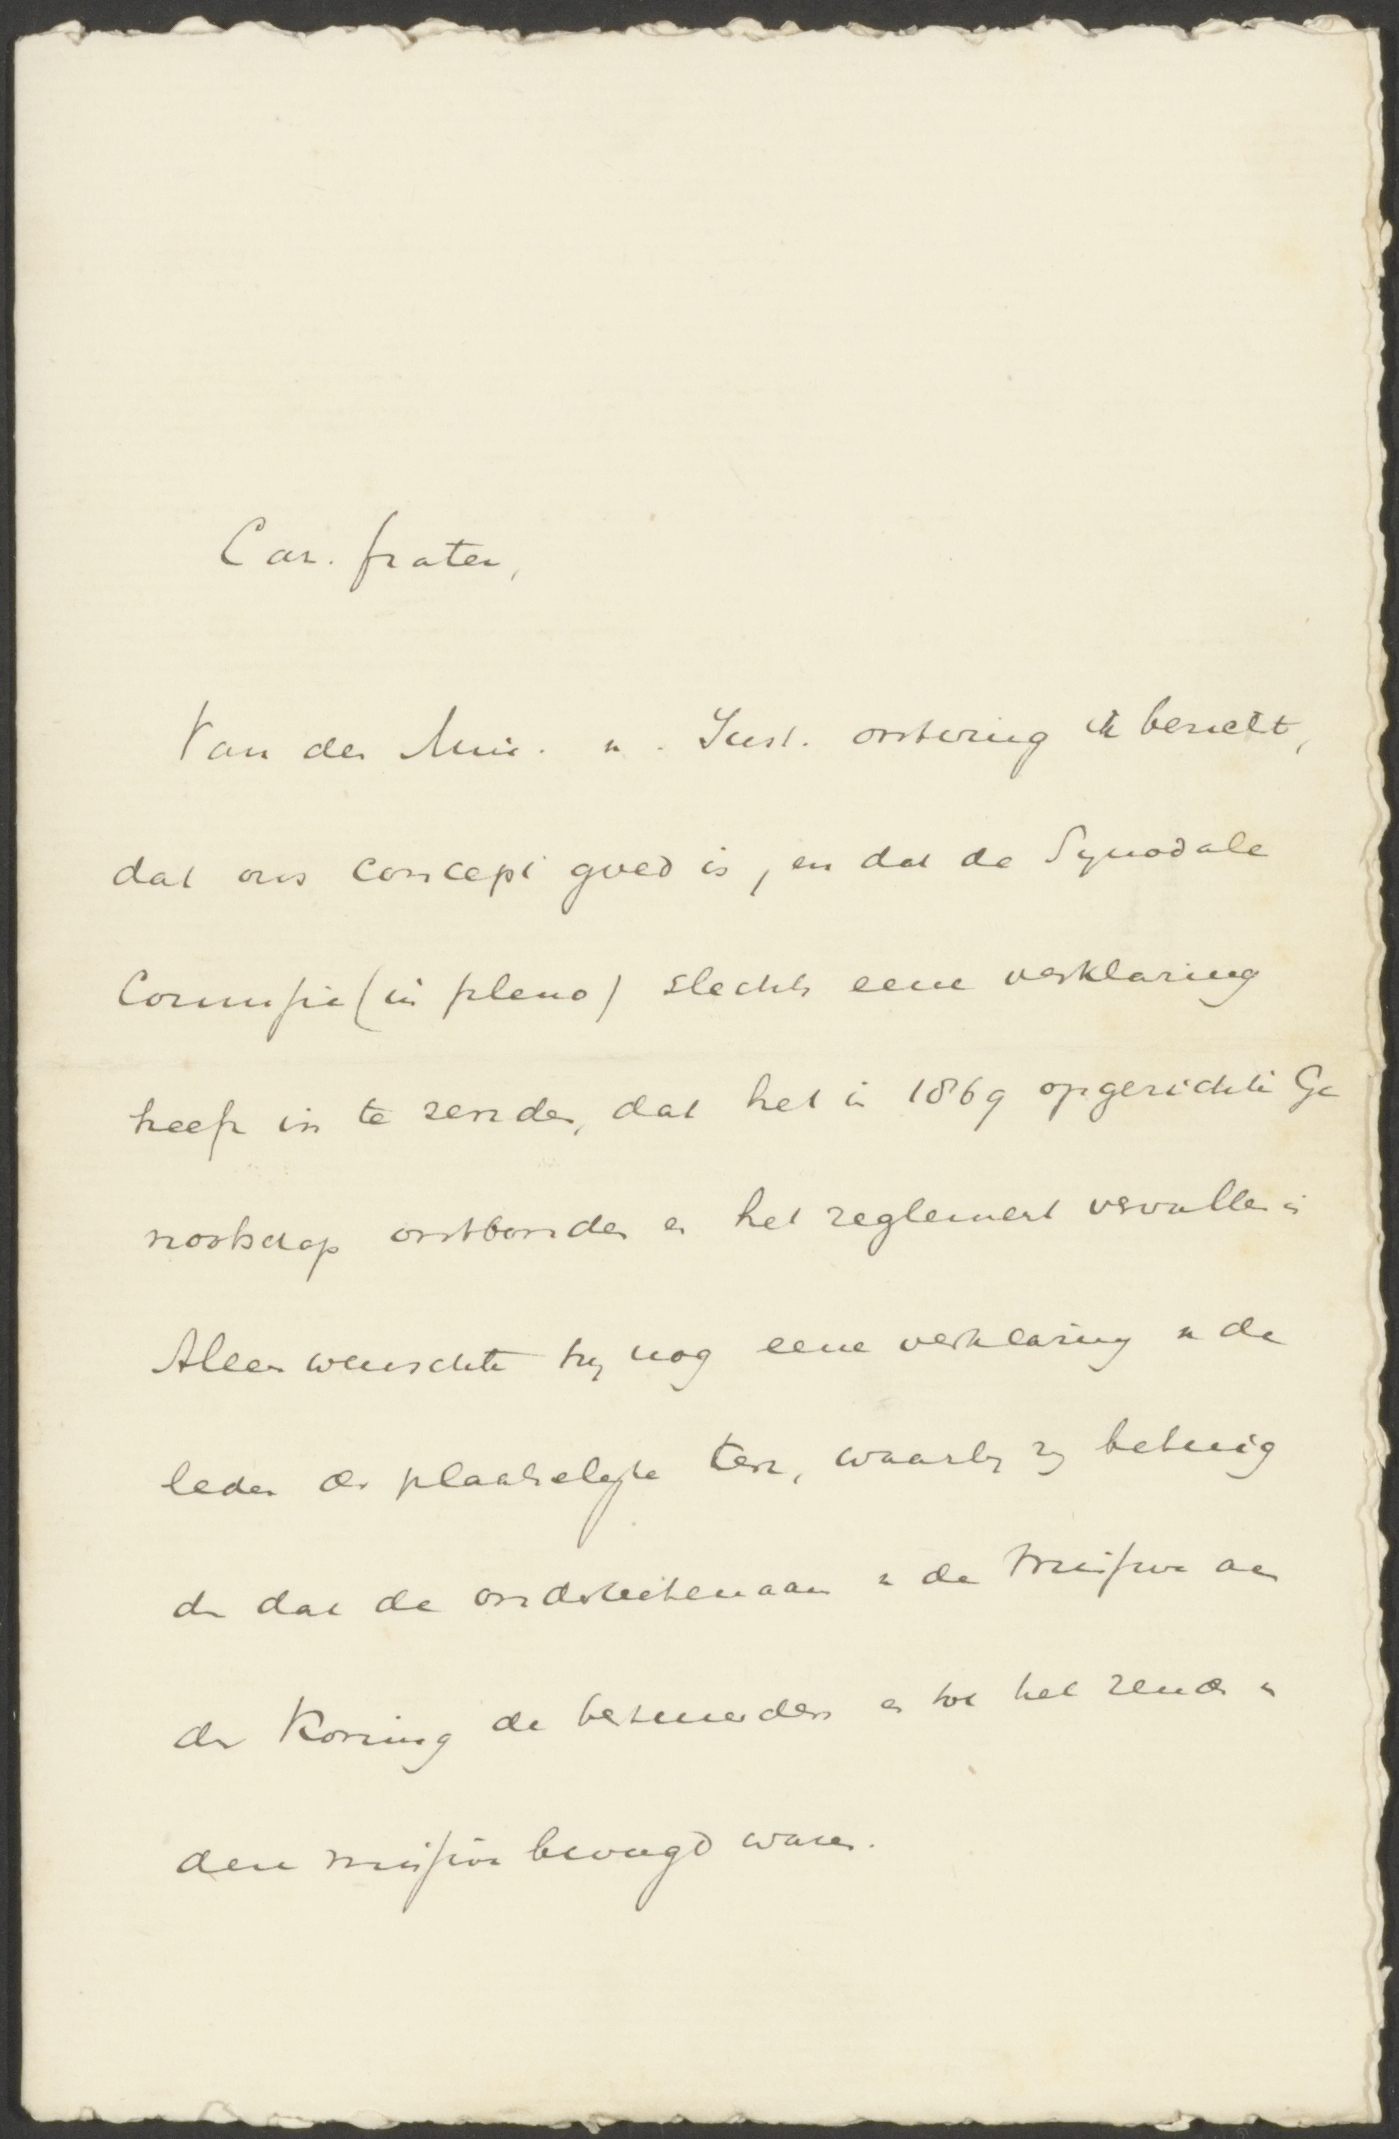 Car. frater,
Van den Min. v. Just. ontving ik bericht,
dat ons concept goed is, en dat de Synodale
Commissie (in pleno) slechts eene verklaring
heeft in te zenden, dat het in 1869 opgerichte Ge
nootschap ontbonden en het reglement vervallen is
Alleen wenschte hij nog eene verklaring v de
leden der plaatselijke , waarbij zij betuig
den dat de onderteekenaars v de missive aan
den Koning de bestuurders en tot het zenden v
deze missive bevoegd waren.